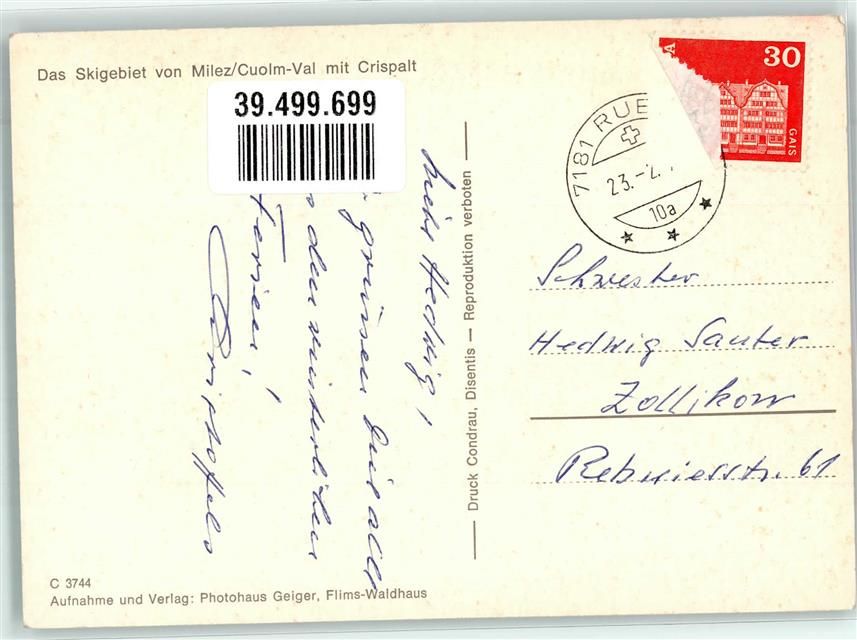 Das Skigebiet von Milez/Cuolm-Val mit Crispalt
39.499.699
Hedwig!
grüssen
den winterlichen
Ferien!
Christoffels
Druck Condrau, Disentis — Reproduktion verboten
A
30
GAIS
7181 RUE
23.-2.
10a
Schwester
Hedwig Sauter
Zollikon
Rebwiesstr. 61
C 3744
Aufnahme und Verlag: Photohaus Geiger, Flims-Waldhaus